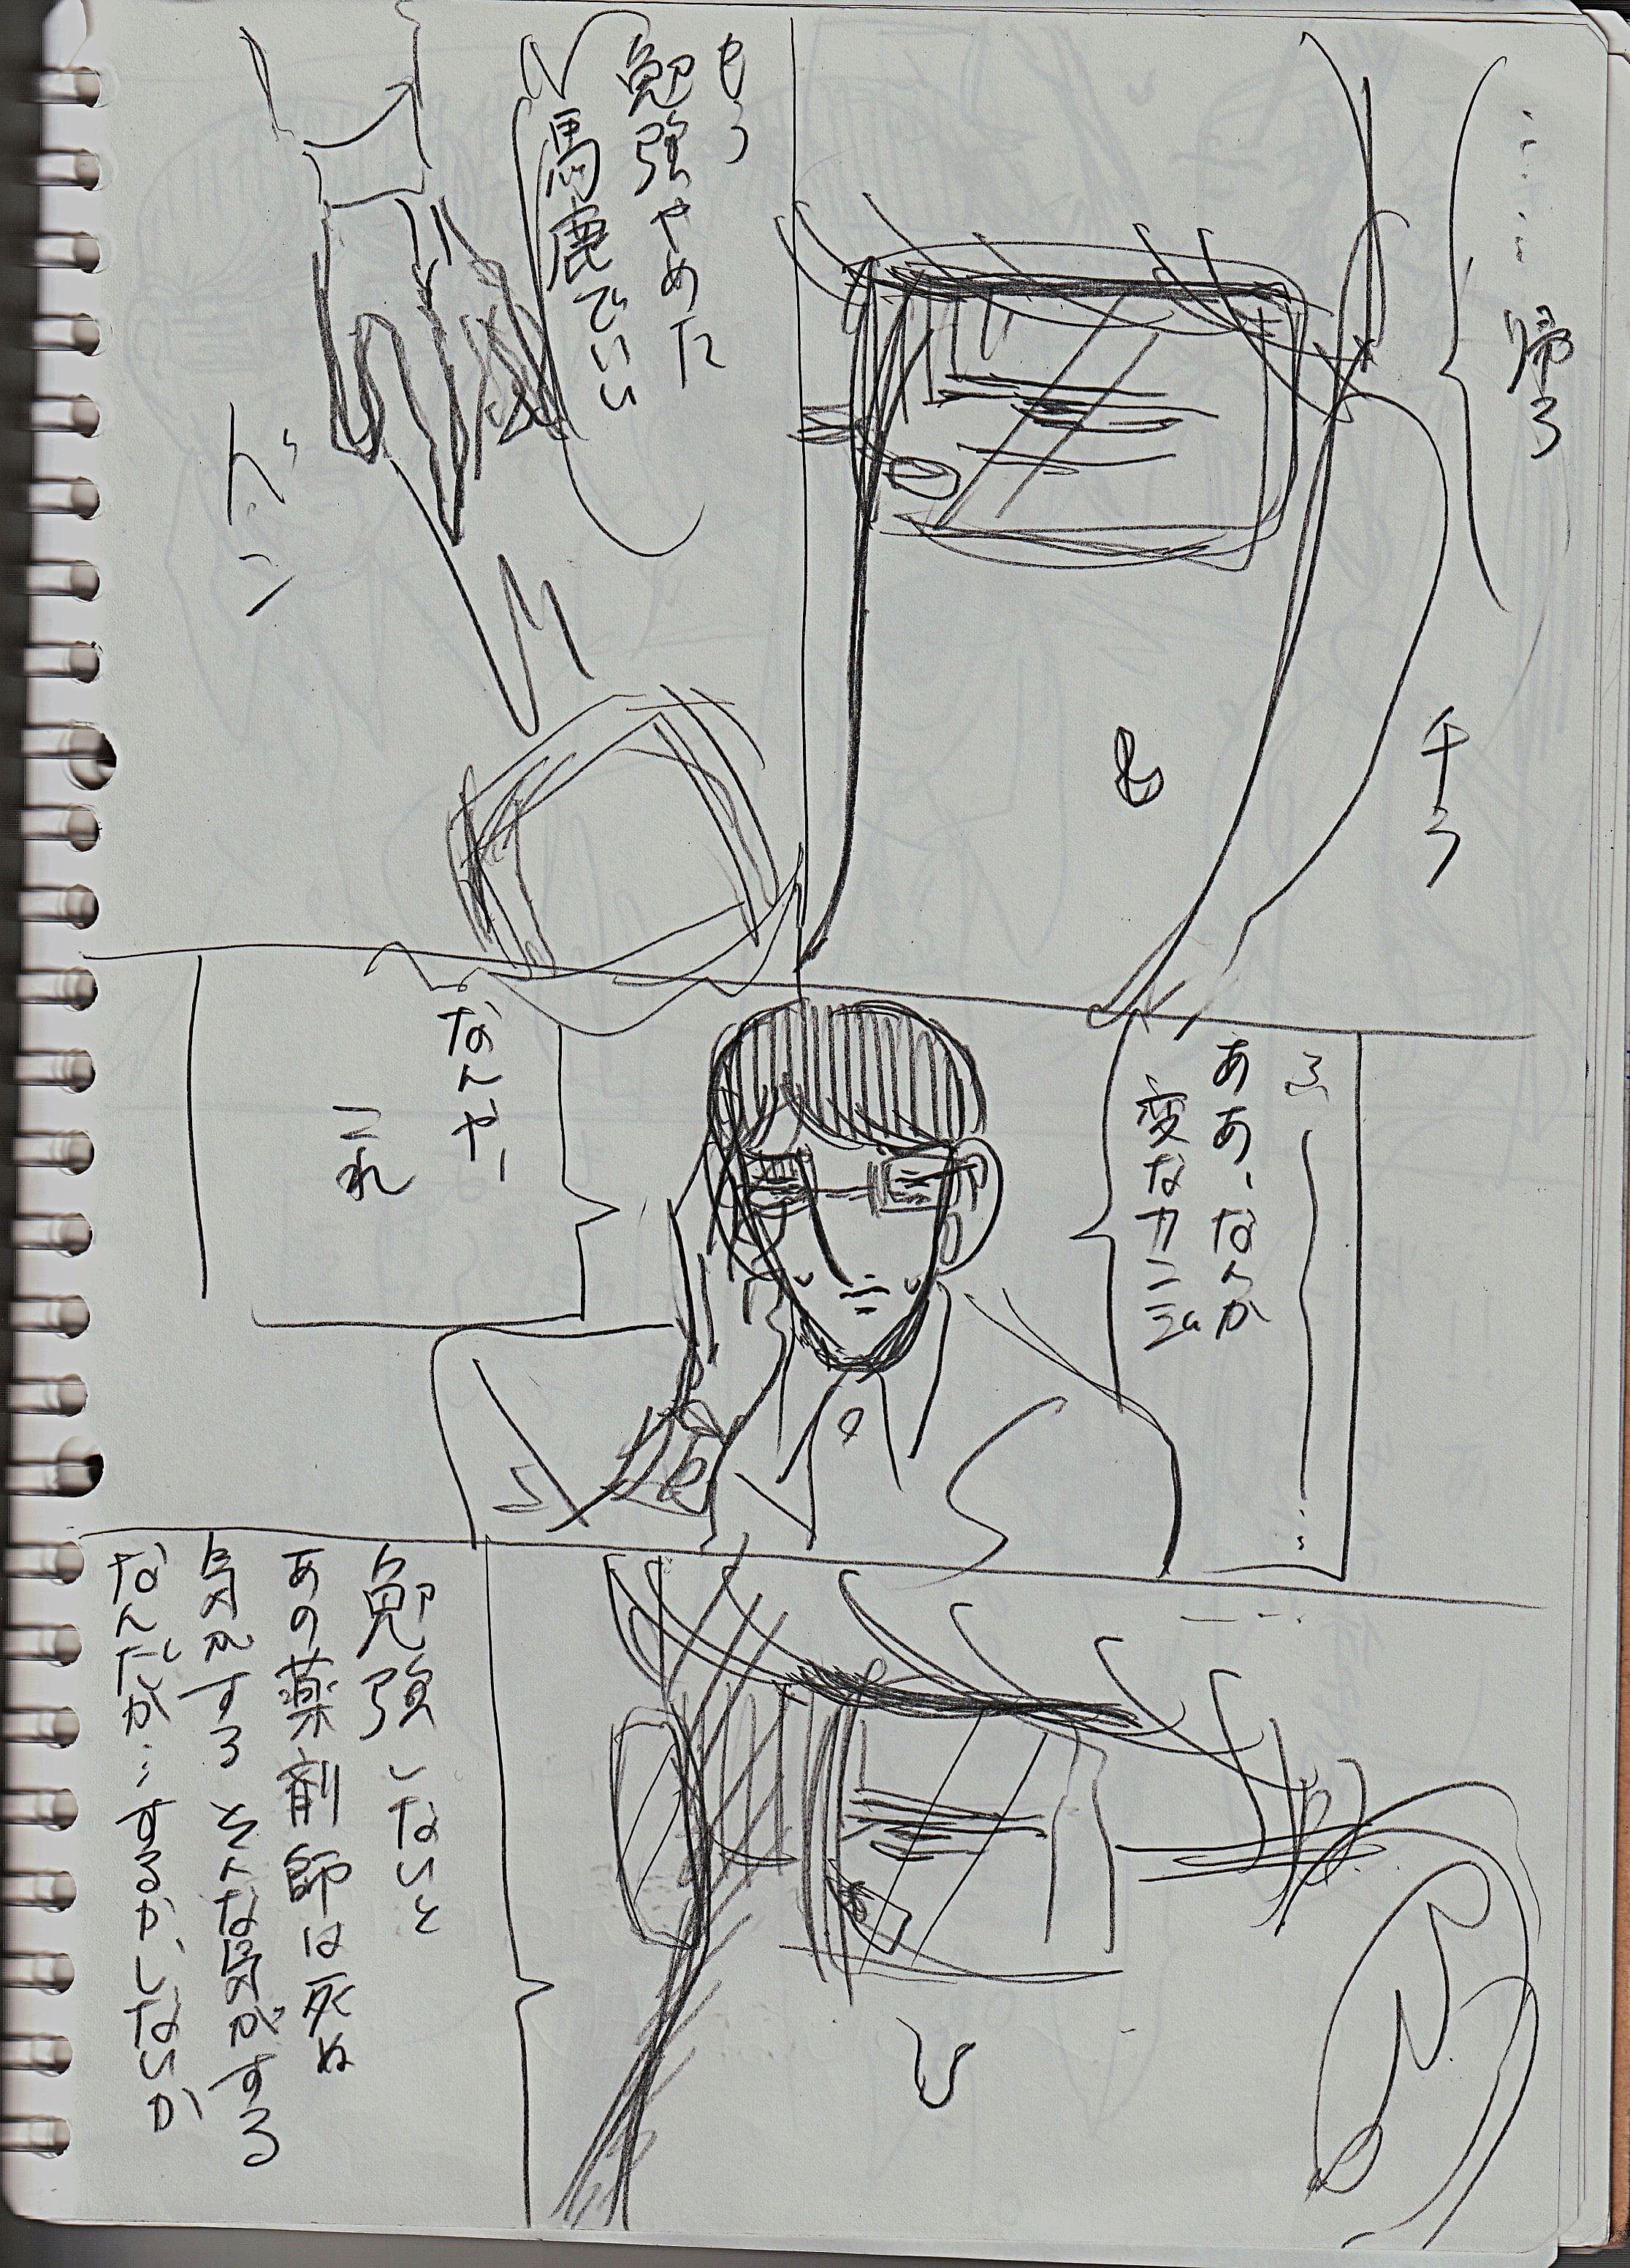 ……帰ろ
チラ
もう
勉強やめた
馬鹿でいい
ふ――…
ああ、なんか
変なカンジ
なんや、
これ
勉強しないと
あの薬剤師は死ぬ
気がする そんな気がする
なんだが…するが、しないが